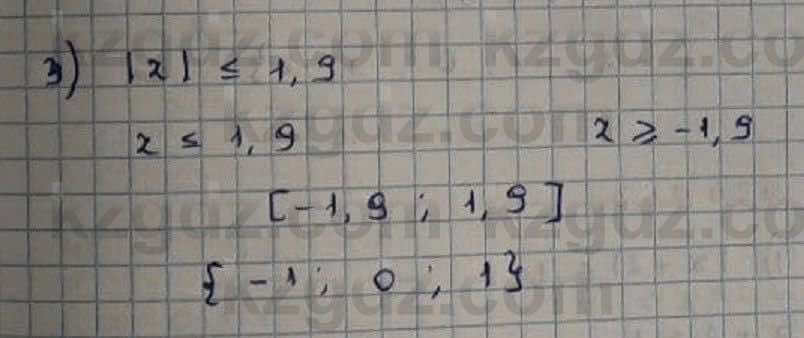 kzgdz.com, kzgdz.co
3) |x| ≤ 1,9
kzgdz.com
x ≤ 1,9 x ≥ -1,9
kzgdz.com, kzgdz.co
[-1,9 ; 1,9]
{-1; 0; 1}
kzgdz.com